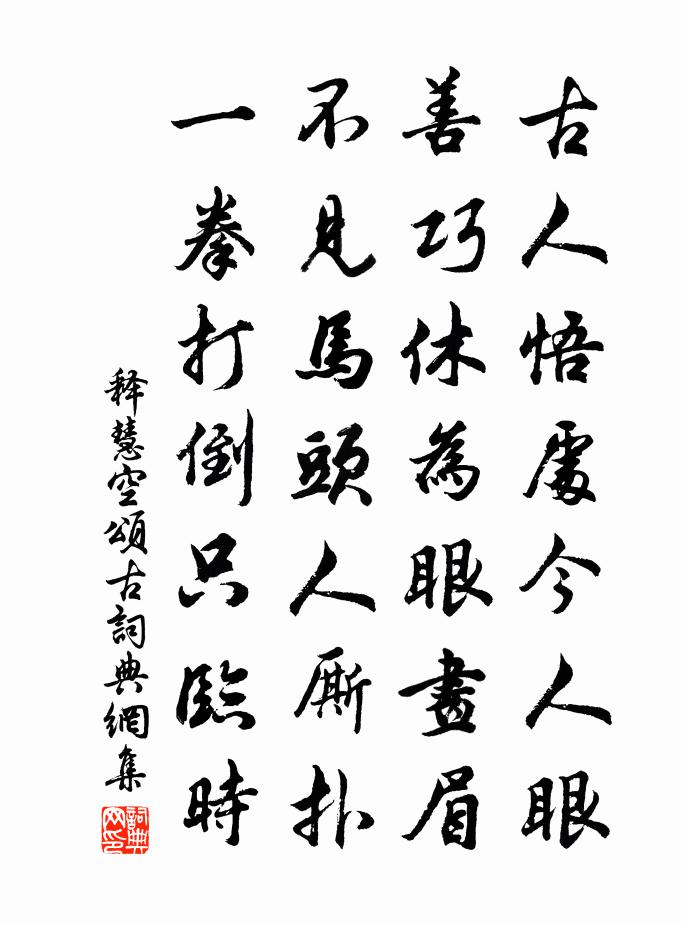 古人悟處今人眼
善巧休為眼畫眉
不見馬頭人厮扑
一拳打倒只臨時
释慧空頌古詞典網集
詞典网印